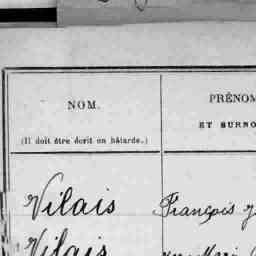 NOM.
(Il doit être écrit en bâtarde.)
PRÉNOM
ET SURNO
Vilais François
Vilais